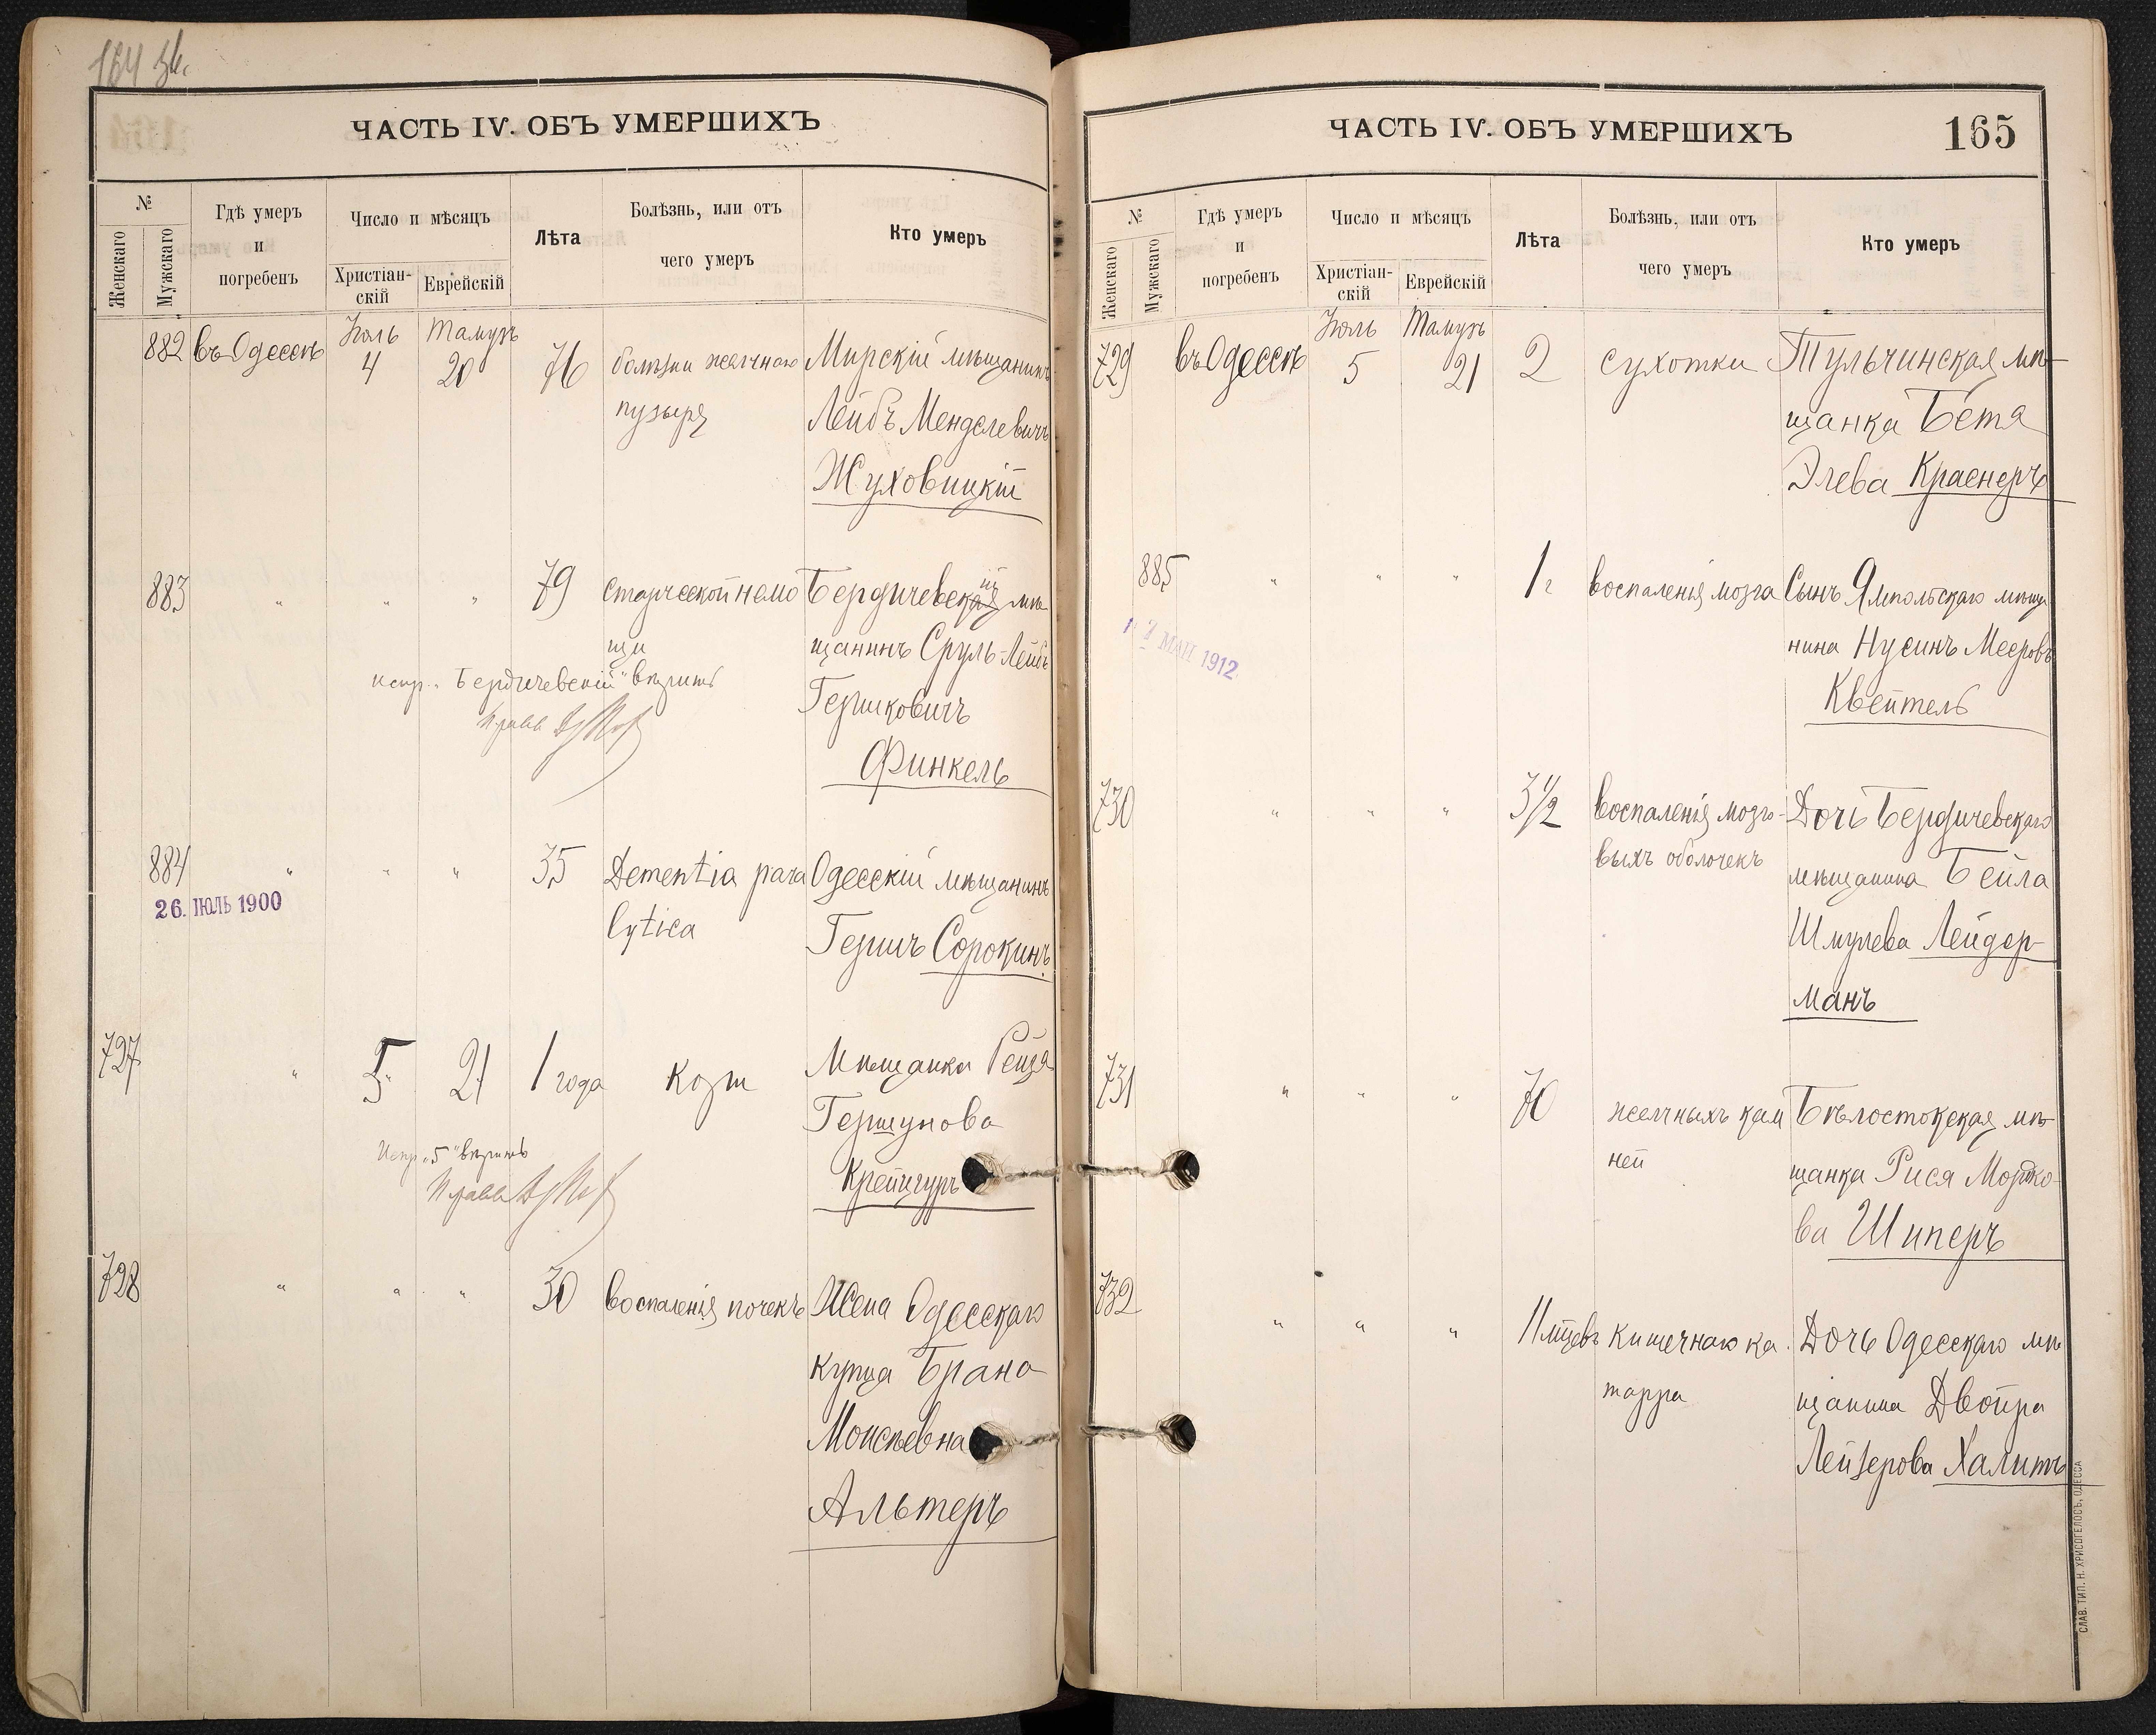 164 об.
ЧАСТЬ IV. ОБЪ УМЕРШИХЪ
№
Женскаго
Мужскаго
Гдѣ умеръ
и
погребенъ
Число и мѣсяцъ
Христіан-
скій
Еврейскій
Лѣта
Болѣзнь, или отъ
чего умеръ
Кто умеръ
882 въ Одессѣ Іюль 4 Тамузъ 20 76 болѣзни желчнаго Мирскій мѣщанинъ
пузыря Лейбъ Менделевичъ
Жуховицкій
883 " " " 79 старческой немо Бердичевскій мѣ
щи щанинъ Сруль-Лейбъ
испр. "Бердичевскій" вѣрить
Гершковичъ
Финкель
884 " " " 35 Dementia para Одесскій мѣщанинъ
26. ІЮЛЬ 1900
lytica Гершъ Сорокинъ
727 " 5 21 1 года кори Мѣщанка Рейзя
Гершунова
Испр. "5" вѣрить
Крейцуръ
728 " " " 30 воспаленія почекъ Жена Одесскаго
купца Брана
Моисѣевна
Альтеръ
ЧАСТЬ IV. ОБЪ УМЕРШИХЪ
165
№
Женскаго
Мужскаго
Гдѣ умеръ
и
погребенъ
Число и мѣсяцъ
Христіан-
скій
Еврейскій
Лѣта
Болѣзнь, или отъ
чего умеръ
Кто умеръ
729 въ Одессѣ Іюль 5 Тамузъ 21 2 сухотки Тульчинская мѣ-
щанка Бетя
Элева Краснеръ
885 " " " 1 г воспаленія мозга Сынъ Ямпольскаго мѣща
17 МАЙ 1912
нина Нусинъ Мееровъ
Квейтель
730 " " " 3 1/2 воспаленія мозго- Дочь Бердичевскаго
выхъ оболочекъ мѣщанина Бейла
Шмулева Лейдер-
манъ
731 " " " 70 желчныхъ кам Бѣлостокская мѣ-
ней щанка Рися Мошко-
ва Шиперъ
732 " " " 11 мцевъ кишечнаго ка Дочь Одесскаго мѣ
тарра щанина Двойра
Лейзерова Халитъ
СЛАВ. ТИП. Н. ХРИСОГЕЛОСЪ, ОДЕССА